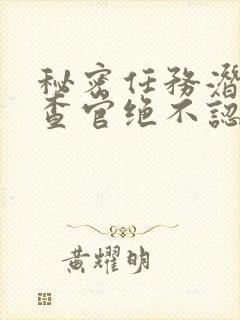 秘密任務潛
查官绝不認
黃耀明